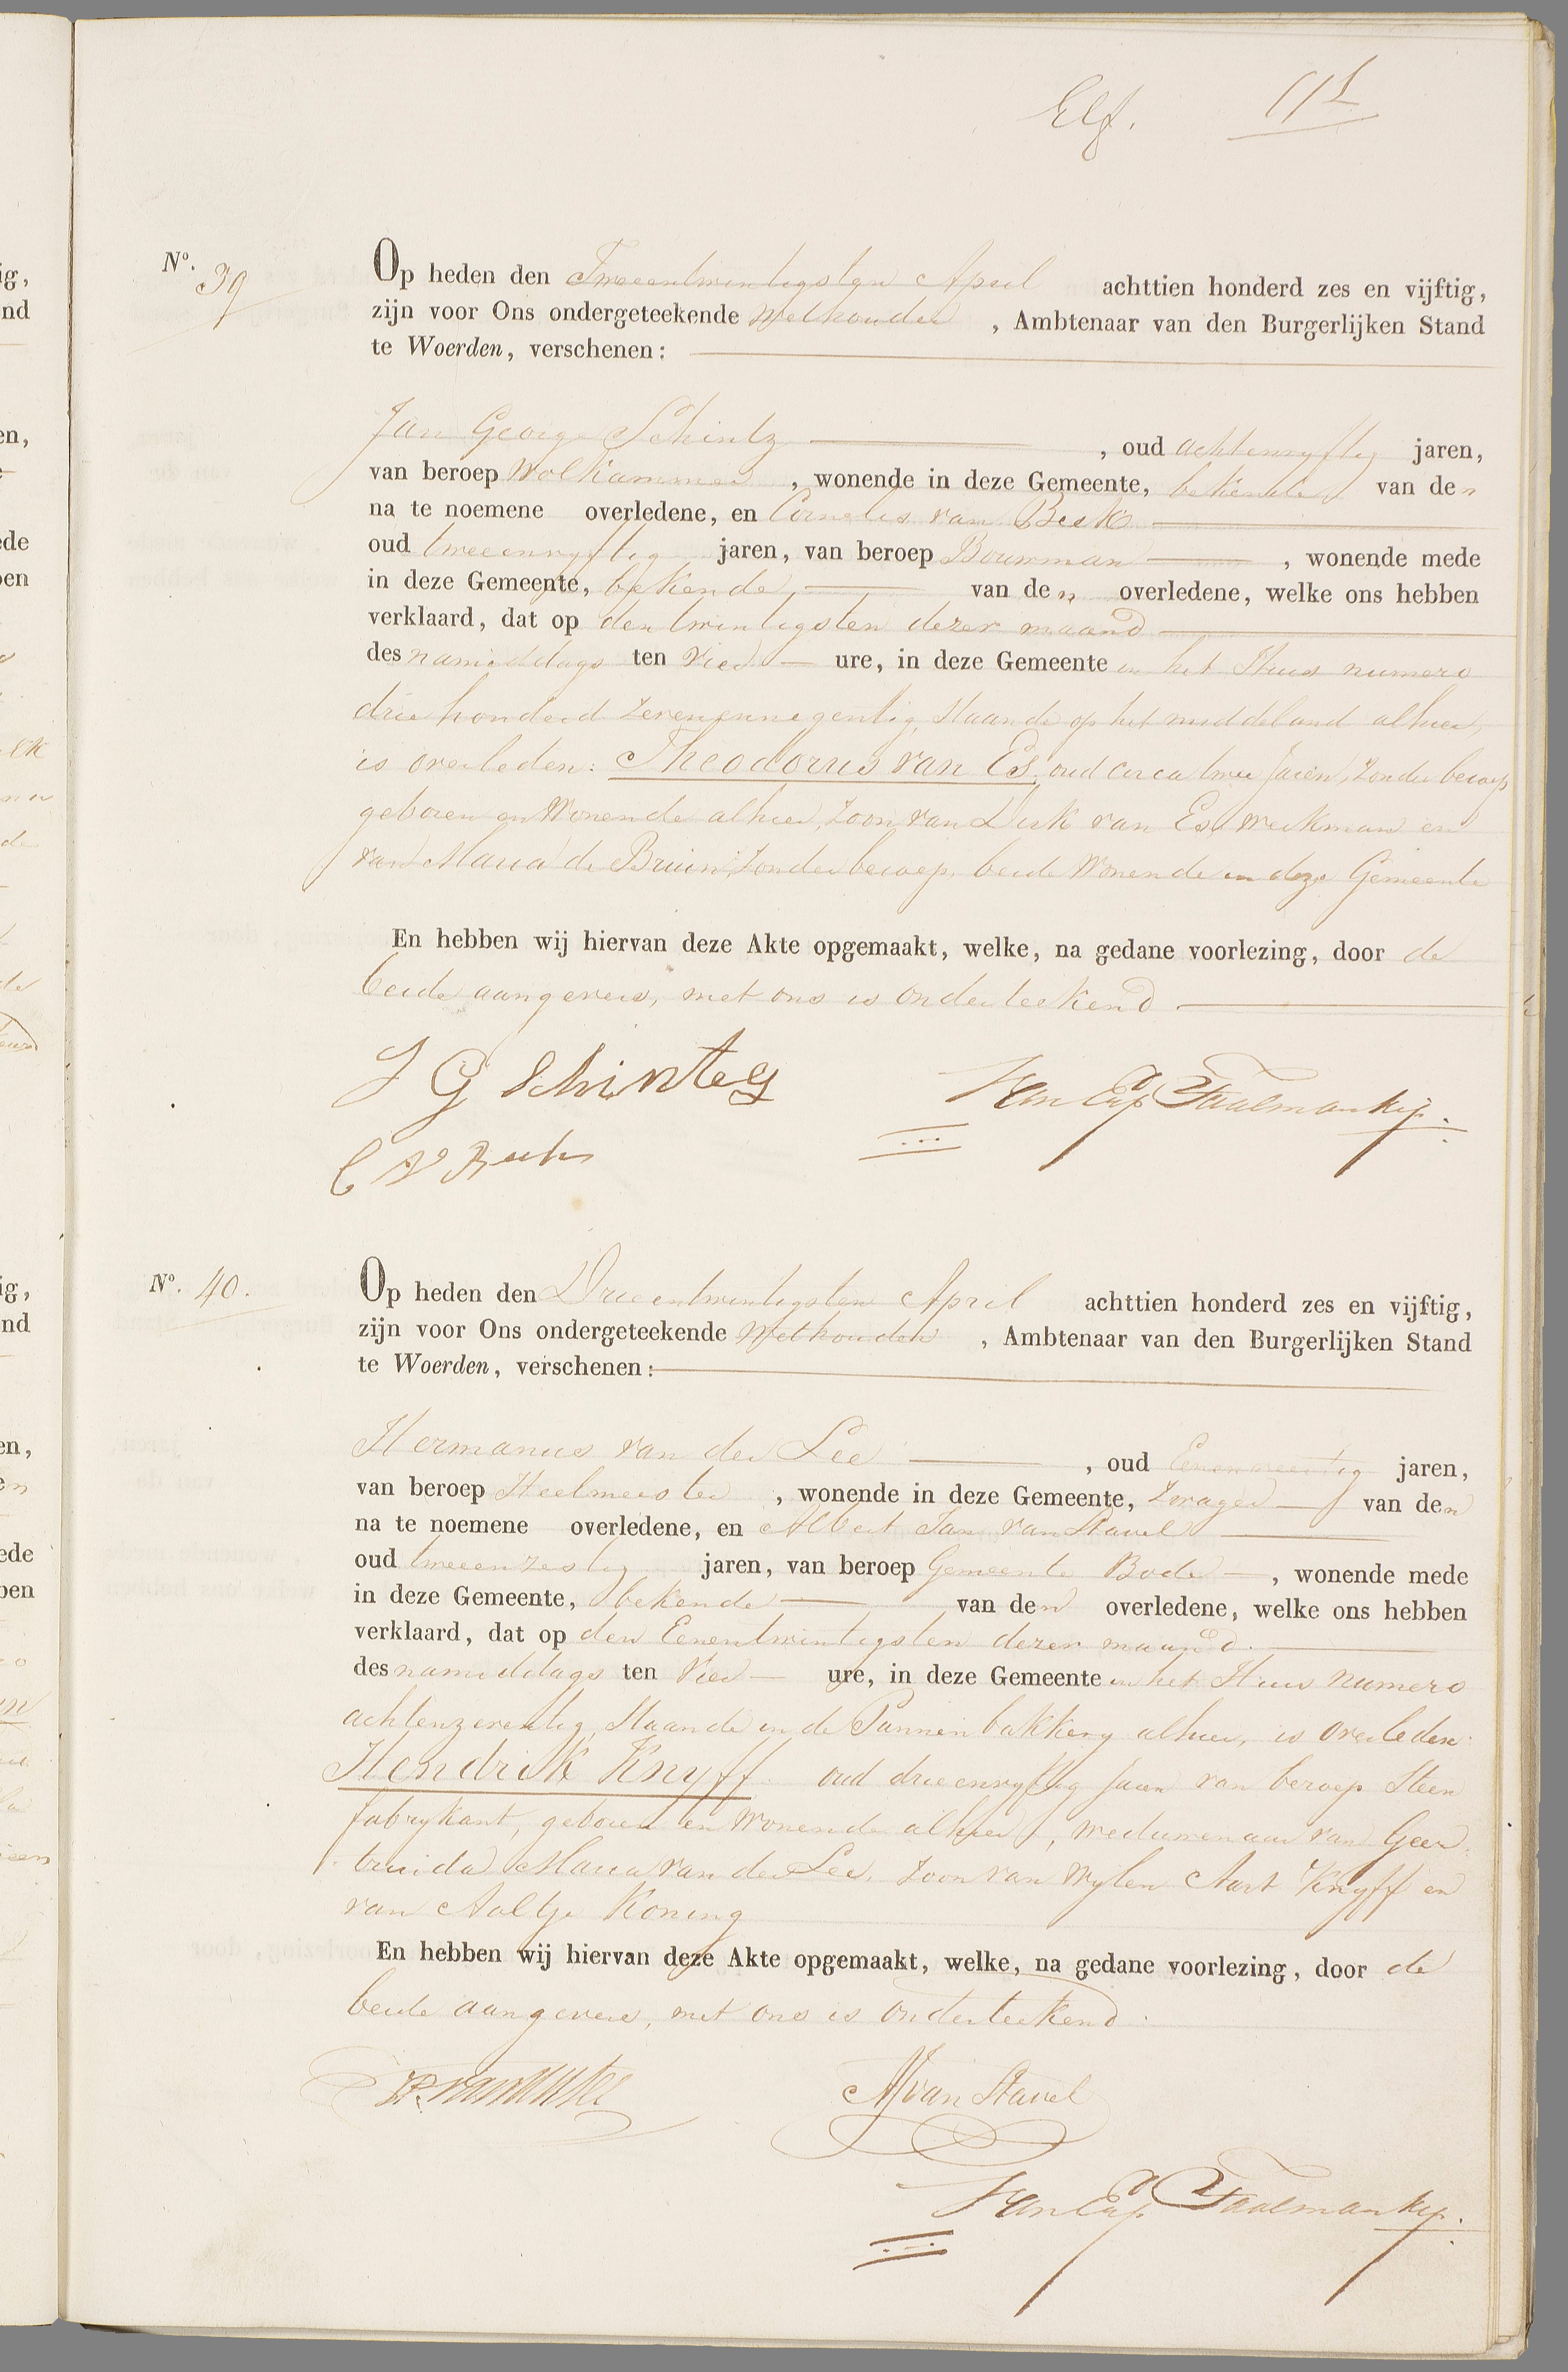 Elf. 11
N°. 39
Op heden den Tweeentwintigsten April achttien honderd zes en vijftig,
zijn voor Ons ondergeteekende Wethouder, Ambtenaar van den Burgerlijken Stand
te Woerden, verschenen:
Jan George Schintz, oud achtenvyftig jaren,
van beroep Wolkammer, wonende in deze Gemeente, bekende van den
na te noemene overledene, en Cornelis van Beek
oud tweeenvyftig jaren, van beroep Bouwman, wonende mede
in deze Gemeente, bekende van den overledene, welke ons hebben
verklaard, dat op den twintigsten dezer maand
des namiddags ten Vier ure, in deze Gemeente in het Huis numero
drie honderd zevenennegentig, staande op het middeland alhier,
is overleden: Theodorus van Es, oud circa twee Jaren, zonder beroep
geboren en Wonende alhier, Zoon van Dirk van Es, werkman en
van Maria de Bruin, zonder beroep, beide Wonende in deze Gemeente
En hebben wij hiervan deze Akte opgemaakt, welke, na gedane voorlezing, door de
beide aangevers, met ons is onderteekend
J G Schintz
C V Beek
N°. 40.
Op heden den Drieentwintigsten April achttien honderd zes en vijftig,
zijn voor Ons ondergeteekende Wethouder, Ambtenaar van den Burgerlijken Stand
te Woerden, verschenen:
Hermanus van der Lee, oud Eenenveertig jaren,
van beroep Heelmeester, wonende in deze Gemeente, Zwager van den
na te noemene overledene, en Albert Jan van Stavel
oud tweeenzestig jaren, van beroep Gemeente Bode, wonende mede
in deze Gemeente, bekende van den overledene, welke ons hebben
verklaard, dat op den Eenentwintigsten dezer maand.
des namiddags ten Vier ure, in deze Gemeente in het Huis numero
achtenzeventig, Staande in de Pannenbakkery alhier, is overleden:
Hendrik Knyff oud drieenvyftig Jaren van beroep Steen
fabrykant, geboren en Wonende alhier, weduwenaar van Geer
truida Maria van der Lee, Zoon van Wylen Aart Knyff en
van Aaltje Koning
En hebben wij hiervan deze Akte opgemaakt, welke, na gedane voorlezing, door de
beide aangevers, met ons is onderteekend.
AJ van Stavel